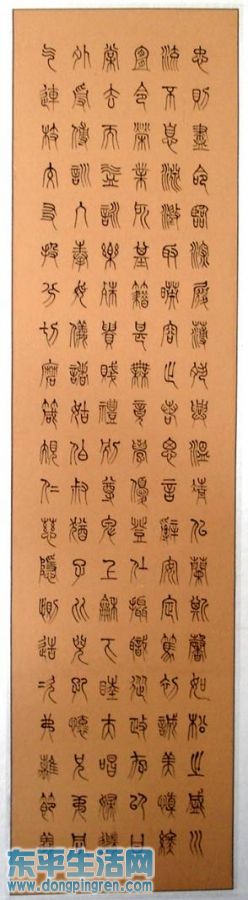 忠則盡命臨深履薄夙興溫凊似蘭斯馨如松之盛川
流不息淵澄取映容止若思言辭安定篤初誠美慎終
宜令榮業所基籍甚無竟學優登仕攝職從政存以甘
棠去而益詠樂殊貴賤禮別尊卑上和下睦夫唱婦隨
外受傅訓入奉母儀諸姑伯叔猶子比兒孔懷兄弟同
氣連枝交友投分切磨箴規仁慈隱惻造次弗離節義
东平生活网
www.dongpingren.com